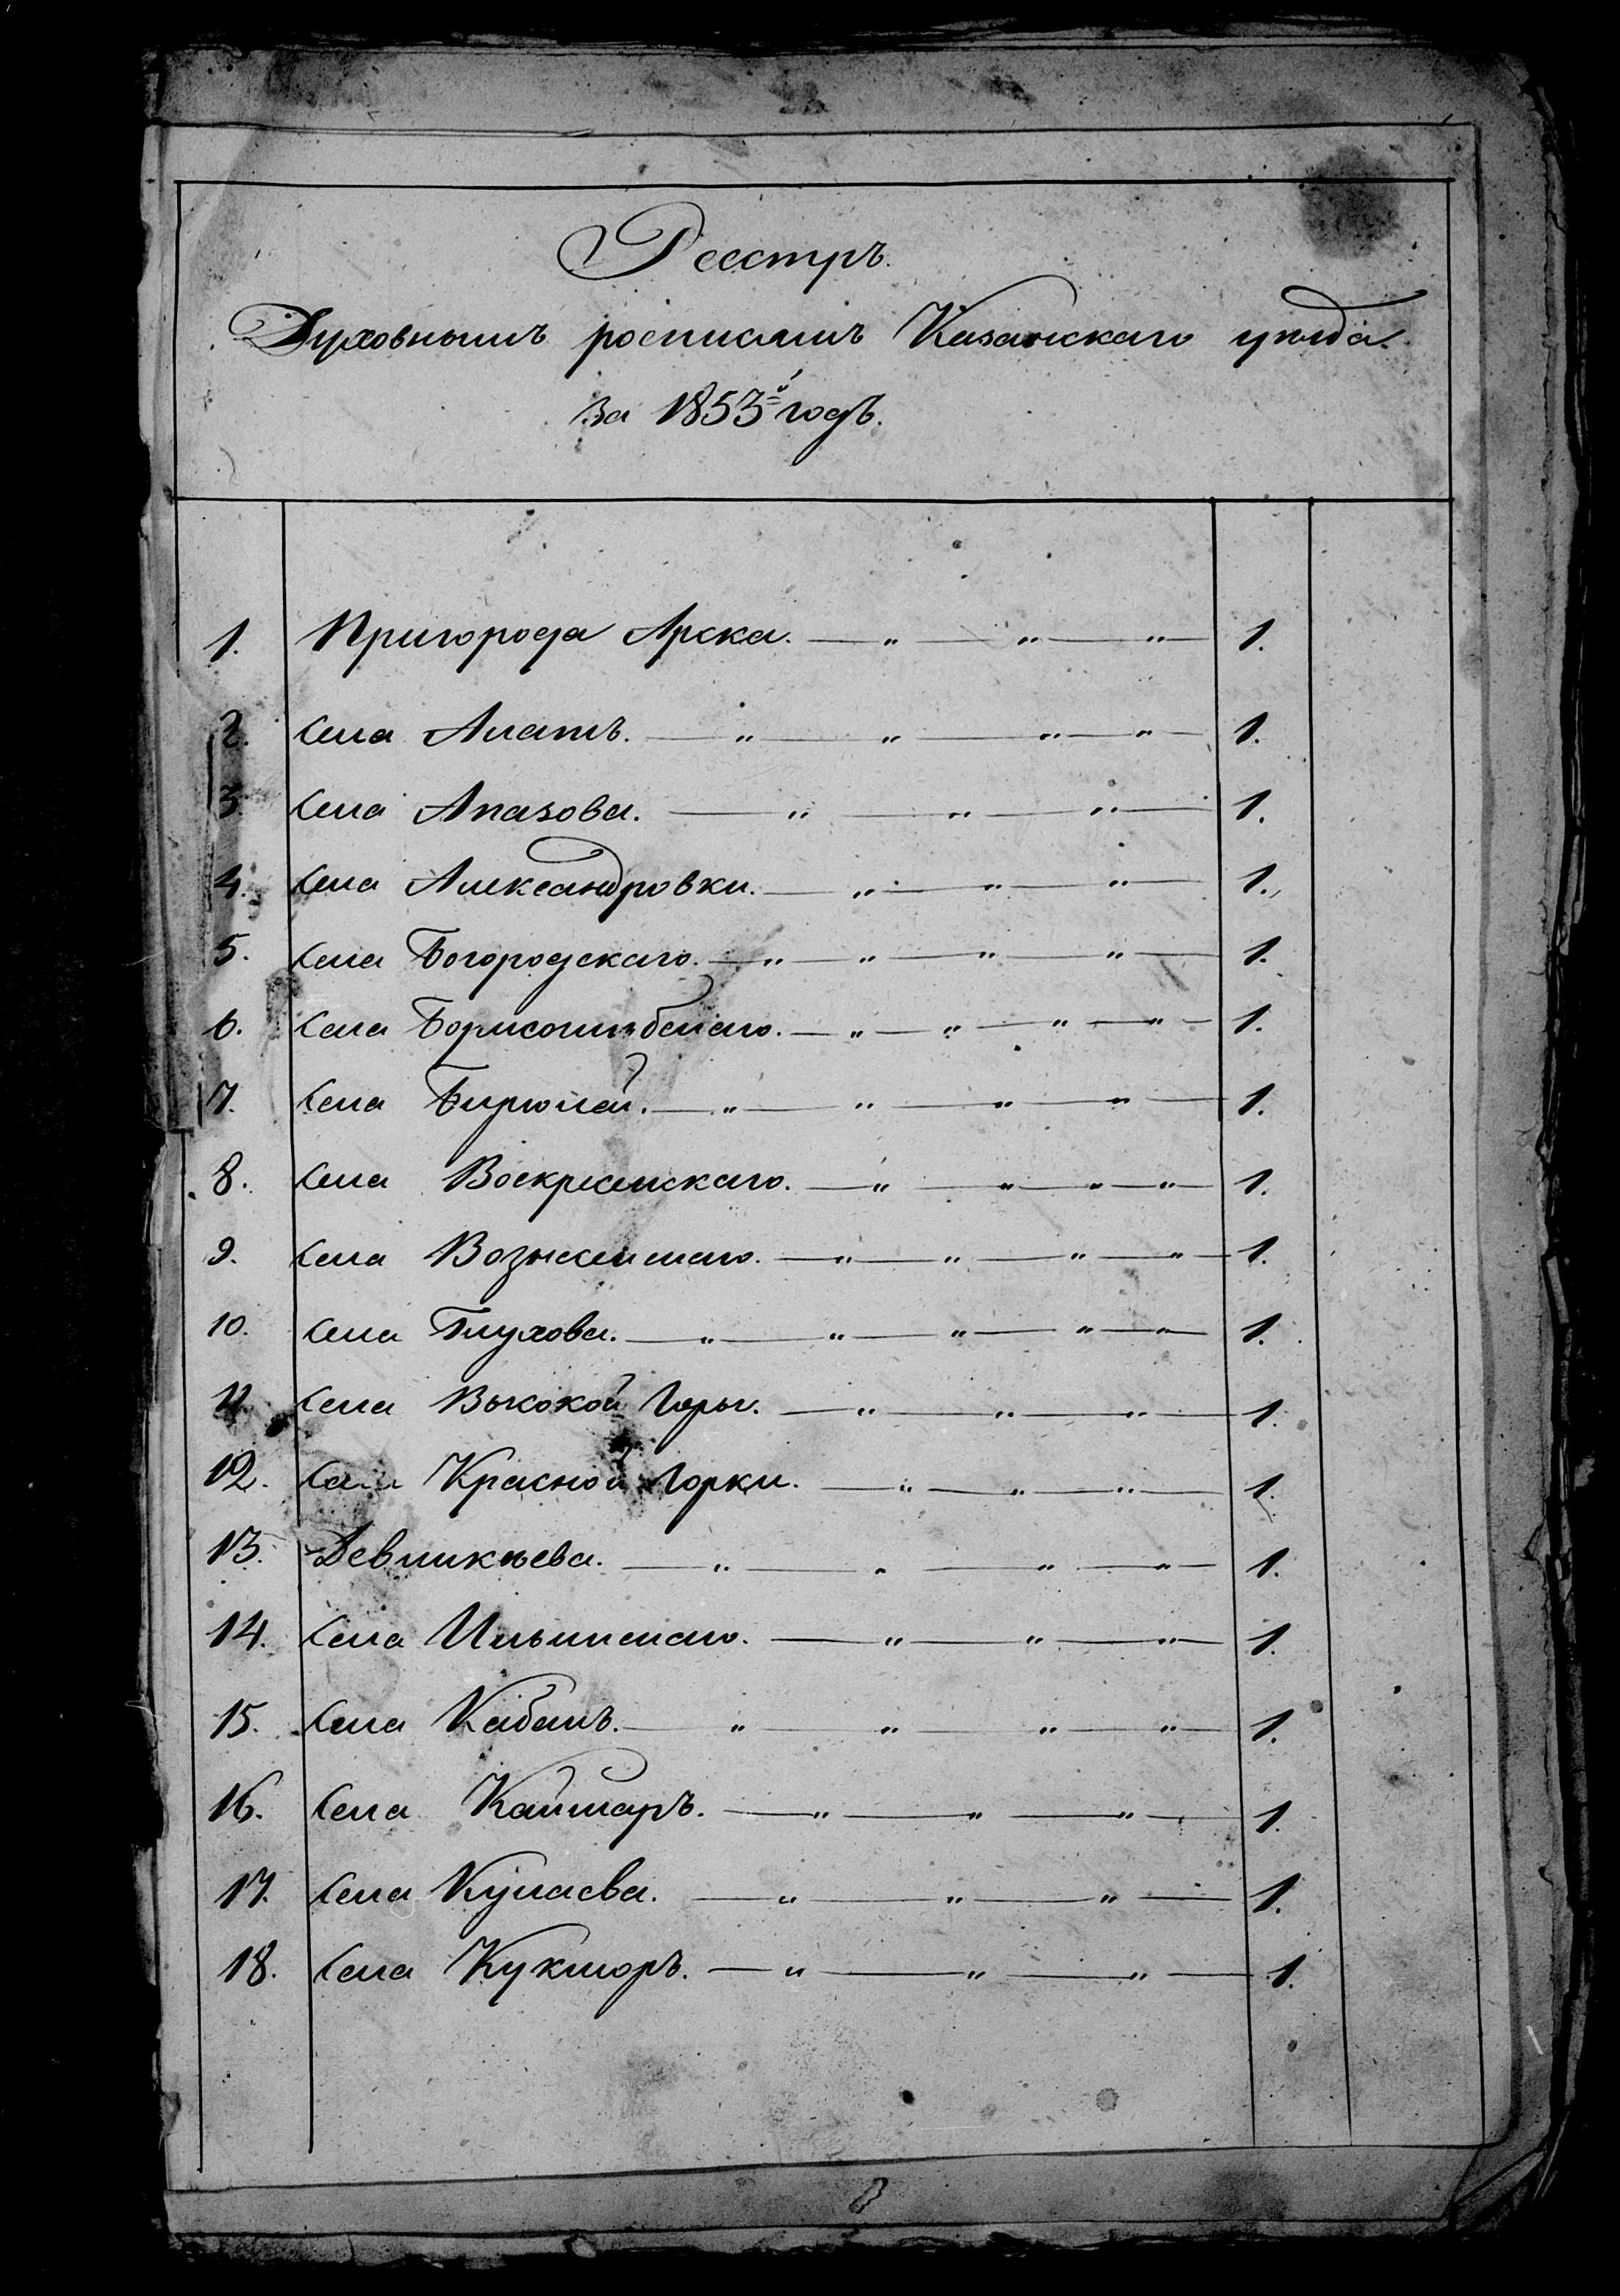 Реестръ.
Духовнымъ росписямъ Казанскаго уѣзда
за 1853й годъ.
1. Пригорода Арска. — " — " — " — 1.
2. Села Алатъ. — " — " — " — " — 1.
3. Села Апазова. — " — " — " — 1.
4. Села Александровки. — " — " — " — 1.
5. Села Богородскаго. — " — " — " — " — 1.
6. Села Борисоглѣбскаго. — " — " — " — " — 1.
7. Села Бирюлей. — " — " — " — " — 1.
8. Села Воскресенскаго. — " — " — " — " — 1.
9. Села Вознесенскаго. — " — " — " — " — 1.
10. Села Глухова. — " — " — " — " — " — 1.
11. Села Высокой Горы. — " — " — " — 1.
12. Села Красной Горки. — " — " — " — 1.
13. Девликѣева. — " — " — " — " — 1.
14. Села Ильинскаго. — " — " — " — 1.
15. Села Кабанъ. — " — " — " — " — 1.
16. Села Каймаръ. — " — " — " — 1.
17. Села Кулаева. — " — " — " — 1.
18. Села Кукморъ. — " — " — " — 1.